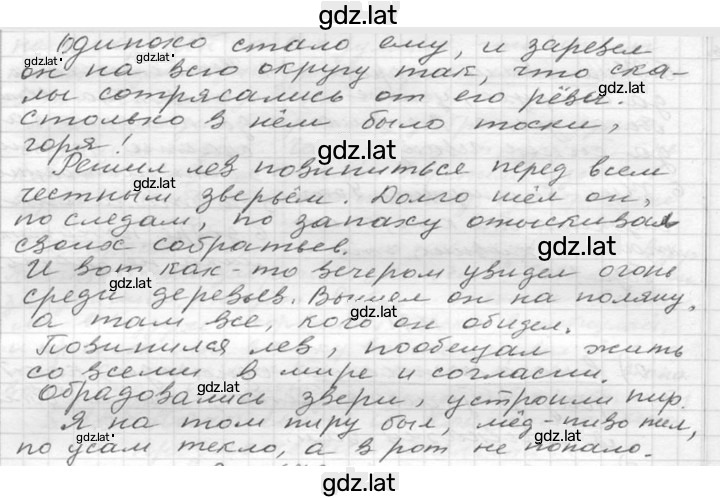 gdz.lat
Одиноко стало ему, и заревел
gdz.lat gdz.lat
он на всю округу так, что ска-
gdz.lat
лы сотрясались от его рёва.
столько в нём было тоски,
горя!
gdz.lat
Решил лев повиниться перед всем
gdz.lat
честным зверьём. Долго шёл он,
по следам, по запаху отыскивал
своих собратьев.
gdz.lat
И вот как-то вечером увидел огонь
gdz.lat
среди деревьев. Вышел он на поляну,
gdz.lat
а там все, кого он обидел.
Повинился лев, пообещал жить
со всеми в мире и согласии.
gdz.lat
Обрадовались звери, устроили пир.
Я на том пиру был, мёд-пиво пил,
gdz.lat gdz.lat
по усам текло, а в рот не попало.
gdz.lat